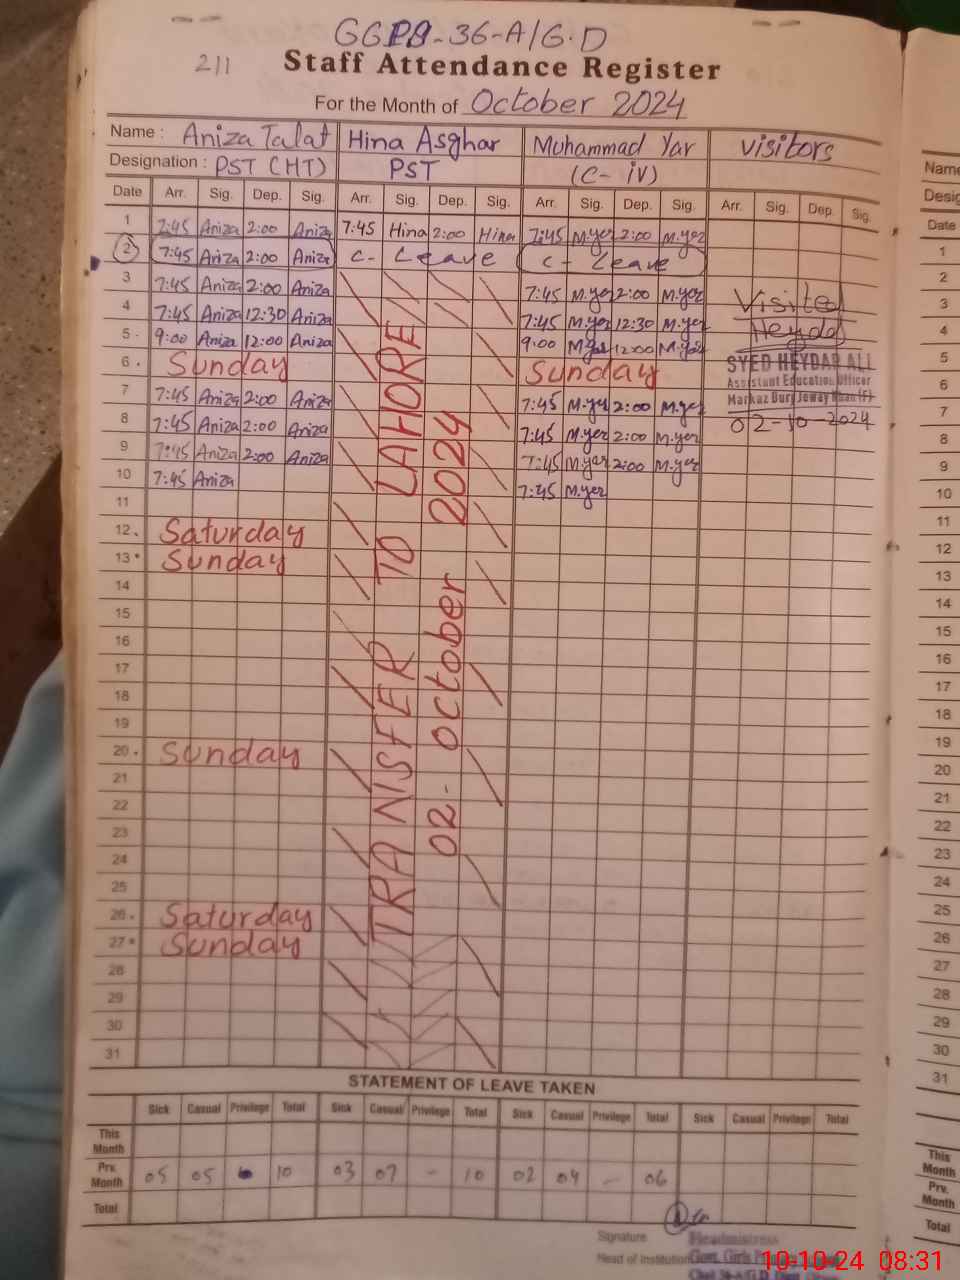 GGPS-36-A/G.D
211
Staff Attendance Register
For the Month of October 2024
Name : Aniza Talat Hina Asghar Muhammad Yar visitors
Designation : PST (HT) PST (C-iV)
Date Arr. Sig. Dep. Sig. Arr. Sig. Dep. Sig. Arr. Sig. Dep. Sig. Arr. Sig. Dep. Sig.
1 7:45 Aniza 2:00 Aniza 7:45 Hina 2:00 Hina 7:45 M.yer 2:00 M.yer
2 7:45 Aniza 2:00 Aniza C- Leave C- Leave
3 7:45 Aniza 2:00 Aniza 7:45 M.yer 2:00 M.yer Visited
4 7:45 Aniza 12:30 Aniza 7:45 M.yer 12:30 M.yer Heydar
5 9:00 Aniza 12:00 Aniza 9:00 M.yer 12:00 M.yer
6 Sunday Sunday SYED HEYDAR ALI
Assistant Education Officer
7 7:45 Aniza 2:00 Aniza 7:45 M.yer 2:00 M.yer Markaz Burj Jeway Khan (F)
8 7:45 Aniza 2:00 Aniza 7:45 M.yer 2:00 M.yer 02-10-2024
9 7:45 Aniza 2:00 Aniza 7:45 M.yer 2:00 M.yer
10 7:45 Aniza 7:45 M.yer
11
12 Saturday
13 Sunday
14
15
16
17
18
19
20 Sunday
21
22
23
24
25
26 Saturday
27 Sunday
28
29
30
31
TRANSFER TO LAHORE
02- October 2024
STATEMENT OF LEAVE TAKEN
Sick Casual Privilege Total Sick Casual Privilege Total Sick Casual Privilege Total Sick Casual Privilege Total
This Month
Prv. Month 05 05 10 03 07 - 10 02 04 - 06
Total
Signature Headmistress
Head of Institution Govt. Girls
Name
Desig
Date
1
2
3
4
5
6
7
8
9
10
11
12
13
14
15
16
17
18
19
20
21
22
23
24
25
26
27
28
29
30
31
This
Month
Prv.
Month
Total
10-10-24 08:31